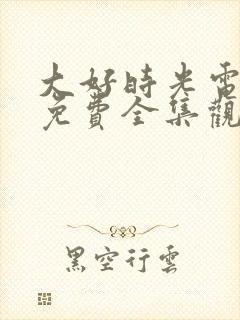 大好時光電
免費全集觀
黑空行雲